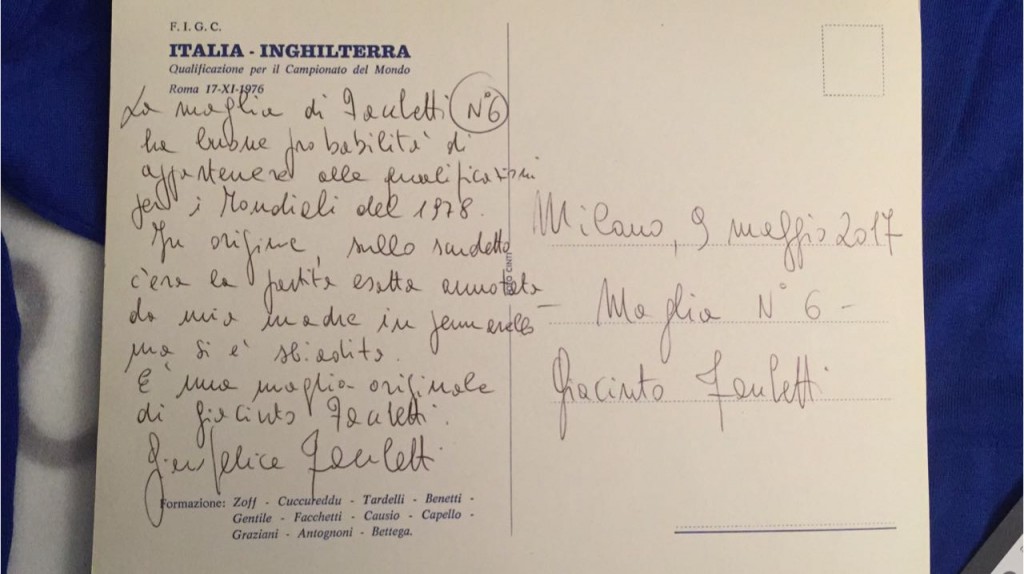 F. I. G. C.
ITALIA - INGHILTERRA
Qualificazione per il Campionato del Mondo
Roma 17-XI-1976
La maglia di Facchetti N°6
ha buone probabilità di
appartenere alle qualificazioni
per i Mondiali del 1978.
In origine, sullo scudetto
c'era la partita esatta annotata
da mia madre in pennarello
ma si è sbiadita.
E' una maglia originale
di Giacinto Facchetti.
Gianfelice Facchetti
Formazione: Zoff - Cuccureddu - Tardelli - Benetti -
Gentile - Facchetti - Causio - Capello -
Graziani - Antognoni - Bettega.
Milano, 9 maggio 2017
- Maglia N° 6 -
Giacinto Facchetti